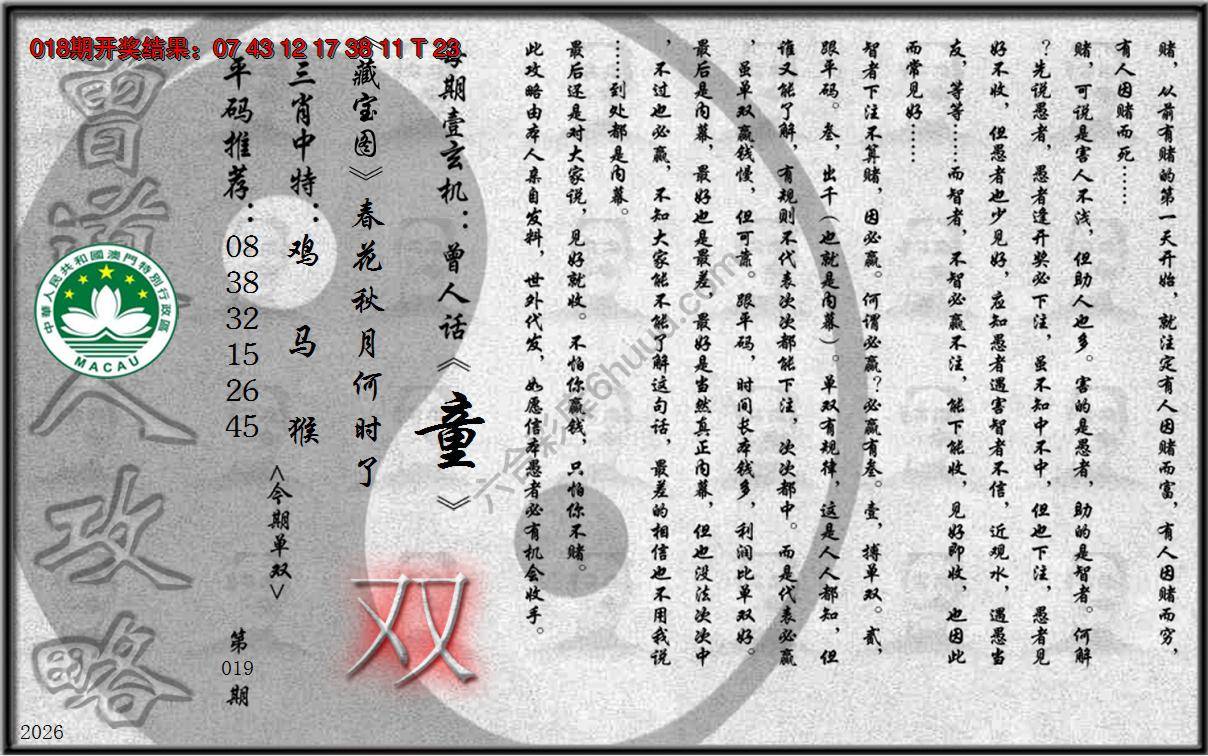 018期开奖结果：07 43 12 17 38 11 T 23
赌，从前有赌的第一天开始，就注定有人因赌而富，有人因赌而穷，
有人因赌而死……
赌，可说是害人不浅，但助人也多。害的是愚者，助的是智者。何解
？先说愚者，愚者逢开奖必下注，虽不知中不中，但也下注，愚者见
好不收，但愚者也少见好，应知愚者遇害智者不信，近观水，遇愚当
友，等等……而智者，不智必赢不注，能下能收，见好即收，也因此
而常见好……
智者下注不算赌，因必赢。何谓必赢？必赢有叁。壹，搏单双。贰，
跟平码。叁，出千（也就是内幕）。单双有规律，这是人人都知，但
谁又能了解，有规则不代表次次都能下注，次次都中。而是代表必赢
，虽单双赢钱慢，但可靠。跟平码，时间长本钱多，利润比单双好。
最后是内幕，最好也是最差，最好是当然真正内幕，但也没法次次中
，不过也必赢，不知大家能不能了解这句话，最差的相信也不用我说
……到处都是内幕。
最后还是对大家说，见好就收。不怕你赢钱，只怕你不赌。
此攻略由本人亲自发料，世外代发，如愿信本愚者必有机会收手。
每期壹玄机：曾人话《童》
《藏宝图》春花秋月何时了
三肖中特：鸡 马 猴
<今期单双>
双
平码推荐：08 38 32 15 26 45
第019期
曾道人攻略
中華人民共和國澳門特別行政區
MACAU
六合彩库6huuu.com
2026